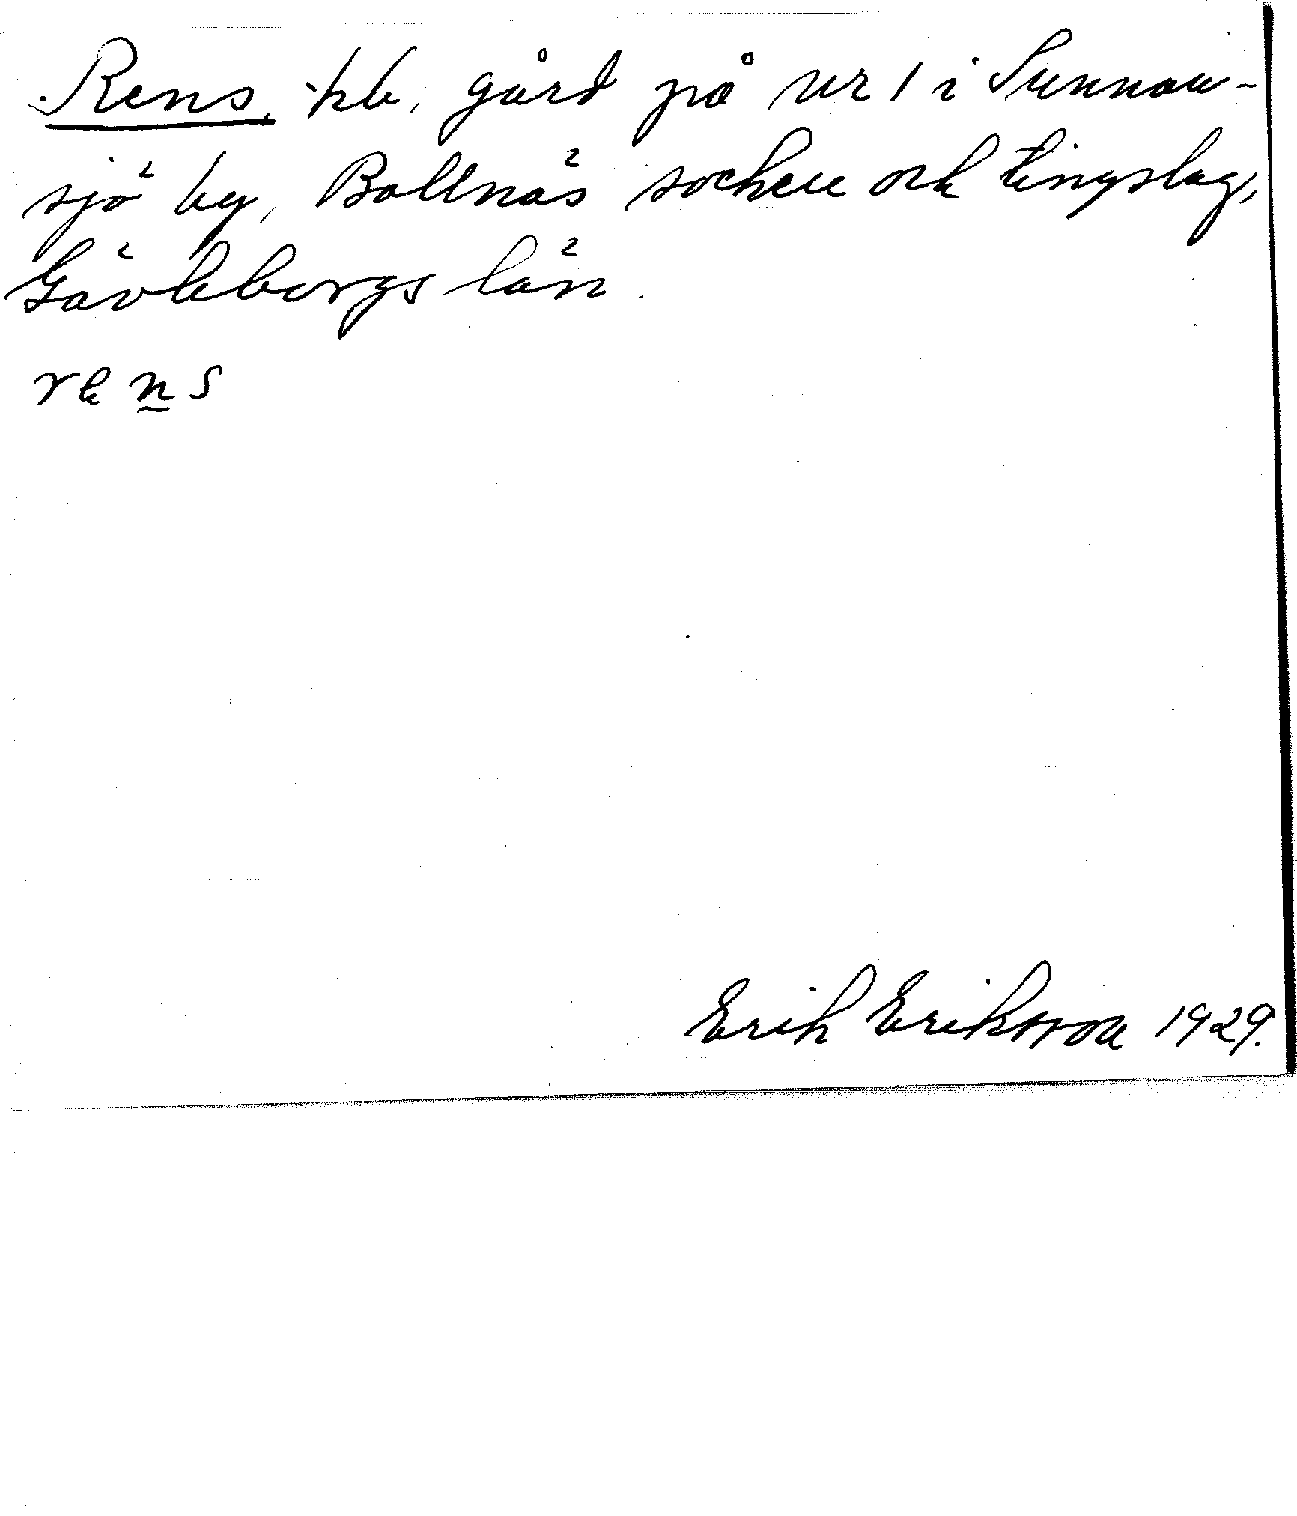 Rens, kb, gård på nr 1 i Sunnan-
sjö by, Bollnäs socken och tingslag,
Gävleborgs län.
rens
Erik Eriksson 1929.